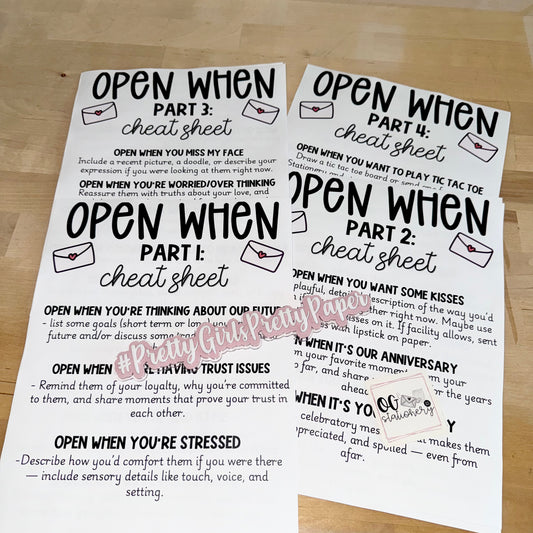 OPEN WHEN
PART 3:
cheat sheet
OPEN WHEN YOU MISS MY FACE
Include a recent picture, a doodle, or describe your
expression if you were looking at them right now.
OPEN WHEN YOU'RE WORRIED/OVER THINKING
Reassure them with truths about your love, and
OPEN WHEN
PART 4:
cheat sheet
OPEN WHEN YOU WANT TO PLAY TIC TAC TOE
Draw a tic tac toe board or send one
OPEN WHEN
PART 1:
cheat sheet
OPEN WHEN YOU'RE THINKING ABOUT OUR FUTU
- list some goals (short term or long
future and/or discuss some
OPEN WHEN YOU'RE HAVING TRUST ISSUES
- Remind them of your loyalty, why you're committed
to them, and share moments that prove your trust in
each other.
OPEN WHEN YOU'RE STRESSED
-Describe how you'd comfort them if you were there
— include sensory details like touch, voice, and
setting.
OPEN WHEN
PART 2:
cheat sheet
OPEN WHEN YOU WANT SOME KISSES
playful, detailed description of the way you'd
her right now. Maybe use
kisses on it. If facility allows, sent
with lipstick on paper.
WHEN IT'S OUR ANNIVERSARY
from your favorite moment from your
so far, and share for the years
ahead
WHEN IT'S YO Y
celebratory mes at makes them
appreciated, and spoiled — even from
afar.
#PrettyGirlsPrettyPaper
OG
stationery